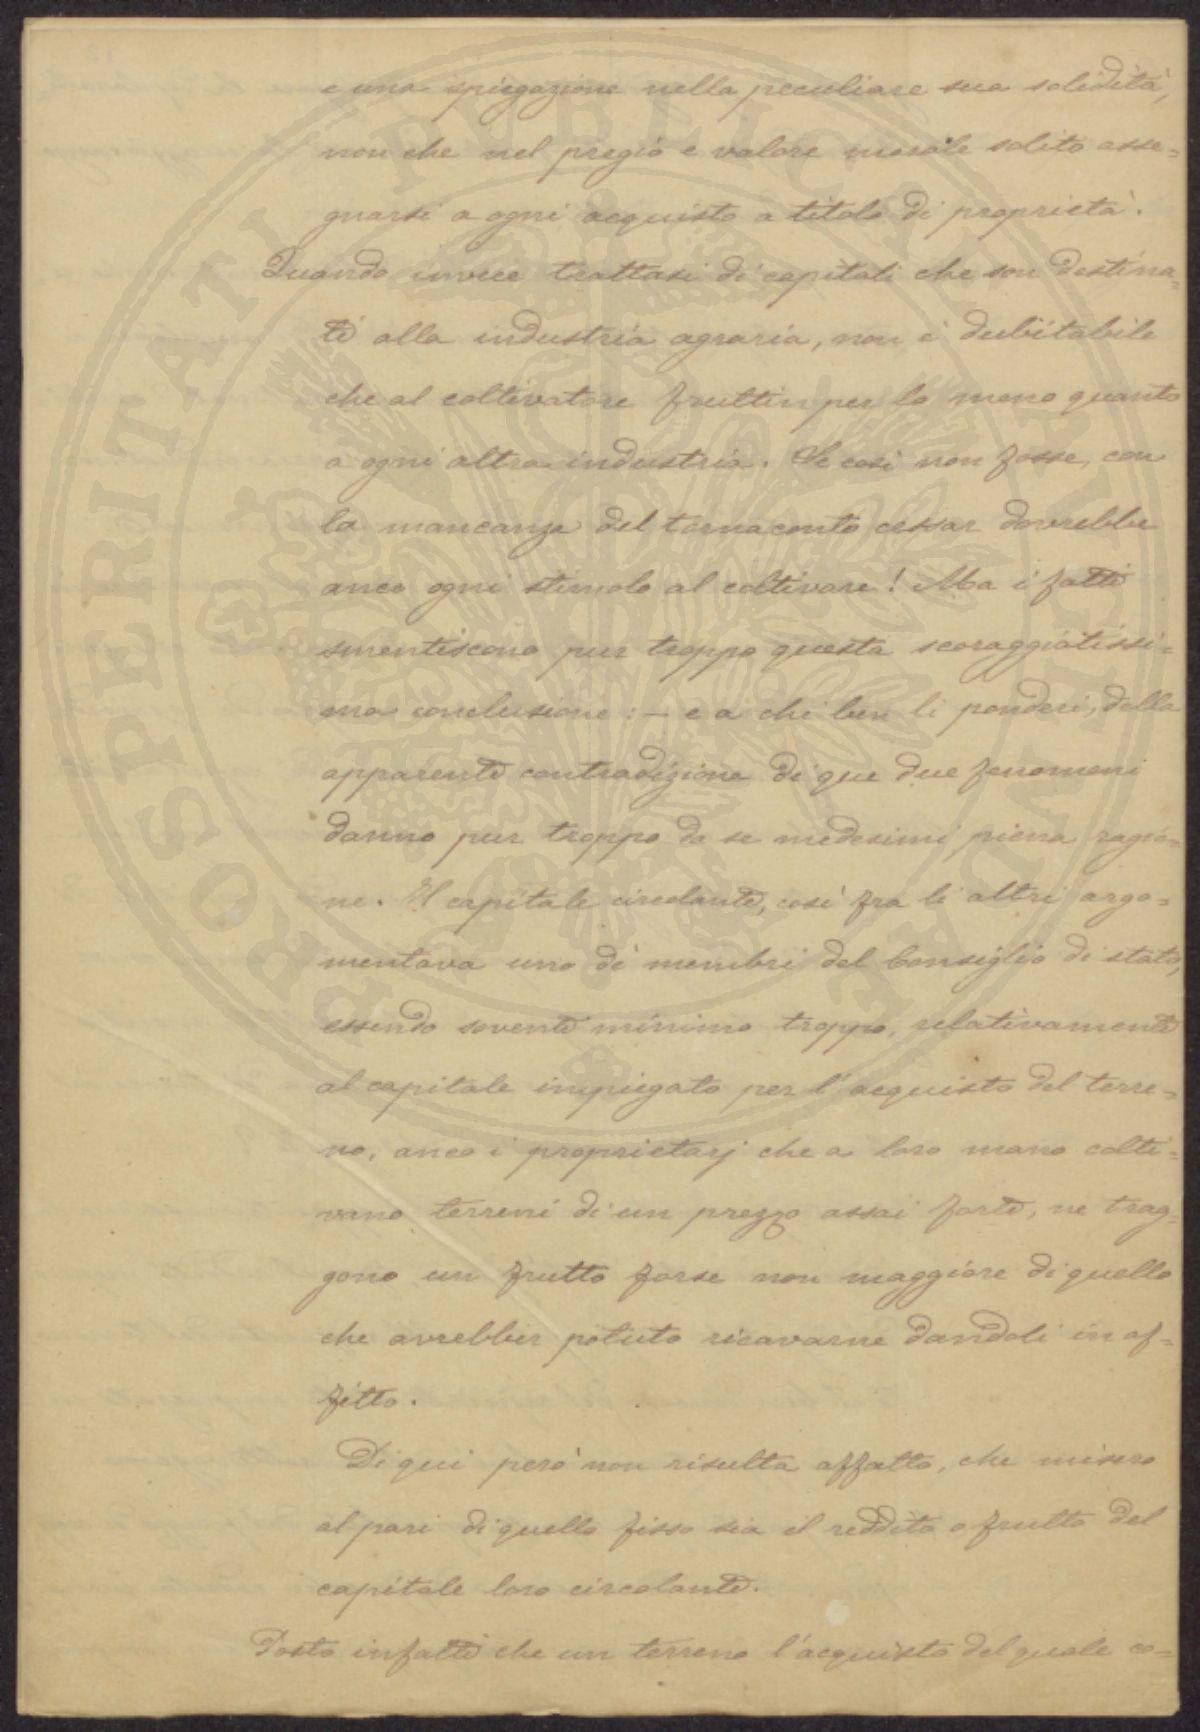 e una spiegazione nella peculiare sua solidità,
non che nel pregio e valore morale solito asse=
gnarsi a ogni acquisto a titolo di proprietà.
Quando invece trattasi di capitali che son destina=
ti alla industria agraria, non è dubitabile
che al coltivatore fruttin per lo meno quanto
a ogni altra industria. Se così non fosse, con
la mancanza del tornaconto cessar dovrebbe
anco ogni stimolo al coltivare! Ma i fatti
smentiscono pur troppo questa scoraggiatissi=
ma conclusione: — e a chi ben li ponderi, della
apparente contradizione di que due fenomeni
danno pur troppo da se medesimi piena ragio=
ne. Il capitale circolante, così fra li altri argo=
mentava uno di membri del Consiglio di stato,
essendo sovente minimo troppo, relativamente
al capitale impiegato per l'acquisto del terre=
no, anco i proprietarj che a loro mano colti=
vano terreni di un prezzo assai forte, ne trag=
gono un frutto forse non maggiore di quello
che avrebber potuto ricavarne dandoli in af=
fitto.
Di qui però non risulta affatto, che misero
al pari di quello fisso sia il reddito o frutto del
capitale loro circolante.
Posto infatti che un terreno l'acquisto del quale co=
PROSPERITATI PUBLICAE